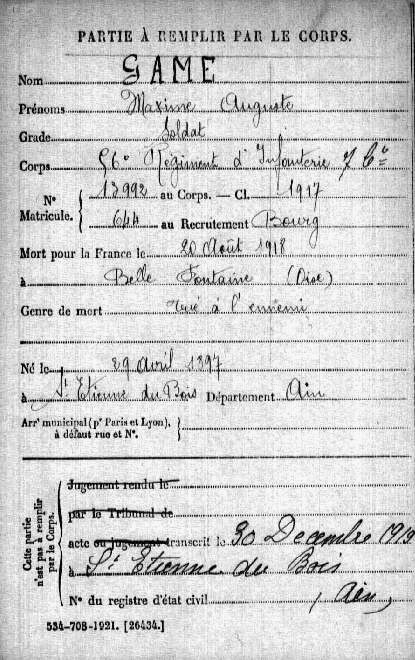 PARTIE À REMPLIR PAR LE CORPS.
Nom GAME
Prénoms Maxime Auguste
Grade Soldat
Corps 56e Régiment d'Infanterie 7 Cie
N° Matricule. { 13992 au Corps. — Cl. 1917
644 au Recrutement Bourg
Mort pour la France le 20 Août 1918
à Belle Fontaine (Oise)
Genre de mort Tué à l'ennemi
Né le 29 Avril 1897
à St Etienne du Bois Département Ain
Arrt municipal (pr Paris et Lyon),
à défaut rue et N°.
Cette partie n'est pas à remplir par le Corps.
Jugement rendu le
par le Tribunal de
acte ou jugement transcrit le 30 Decembre 1919
à St Etienne du Bois
N° du registre d'état civil (Ain)
534-708-1921. [26434.]